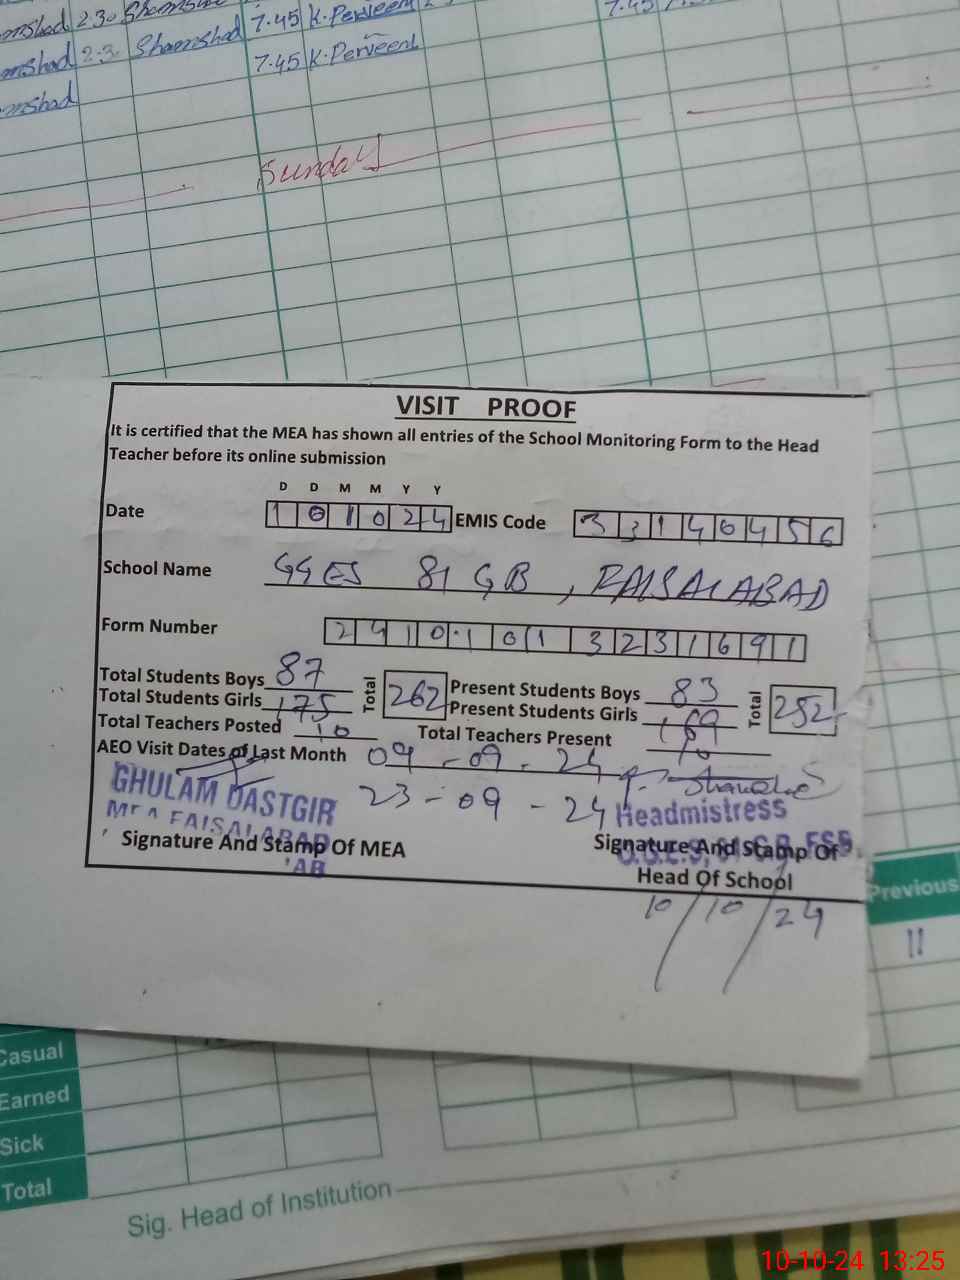 mshad 2.30 Shamshad 7.45 K.Perveen 7.45
mshad 2.3. Shamshad 7.45 K.Perveen
mshad
Sunday
VISIT PROOF
It is certified that the MEA has shown all entries of the School Monitoring Form to the Head
Teacher before its online submission
D D M M Y Y
Date 1 0 1 0 2 4 EMIS Code 3 3 1 4 0 4 5 6
School Name GGES 81 GB, FAISALABAD
Form Number 2 4 1 0 1 0 1 3 2 3 1 6 9 1
Total Students Boys 87 Total 262 Present Students Boys 83 Total 252
Total Students Girls 175 Present Students Girls 169
Total Teachers Posted 10 Total Teachers Present 10
AEO Visit Dates of Last Month 09-09-24
23-09-24
GHULAM DASTGIR
MEA FAISALABAD
Headmistress
Signature And Stamp Of MEA
Signature And Stamp Of
Head Of School
10/10/24
Previous
11
Casual
Earned
Sick
Total
Sig. Head of Institution
10-10-24 13:25